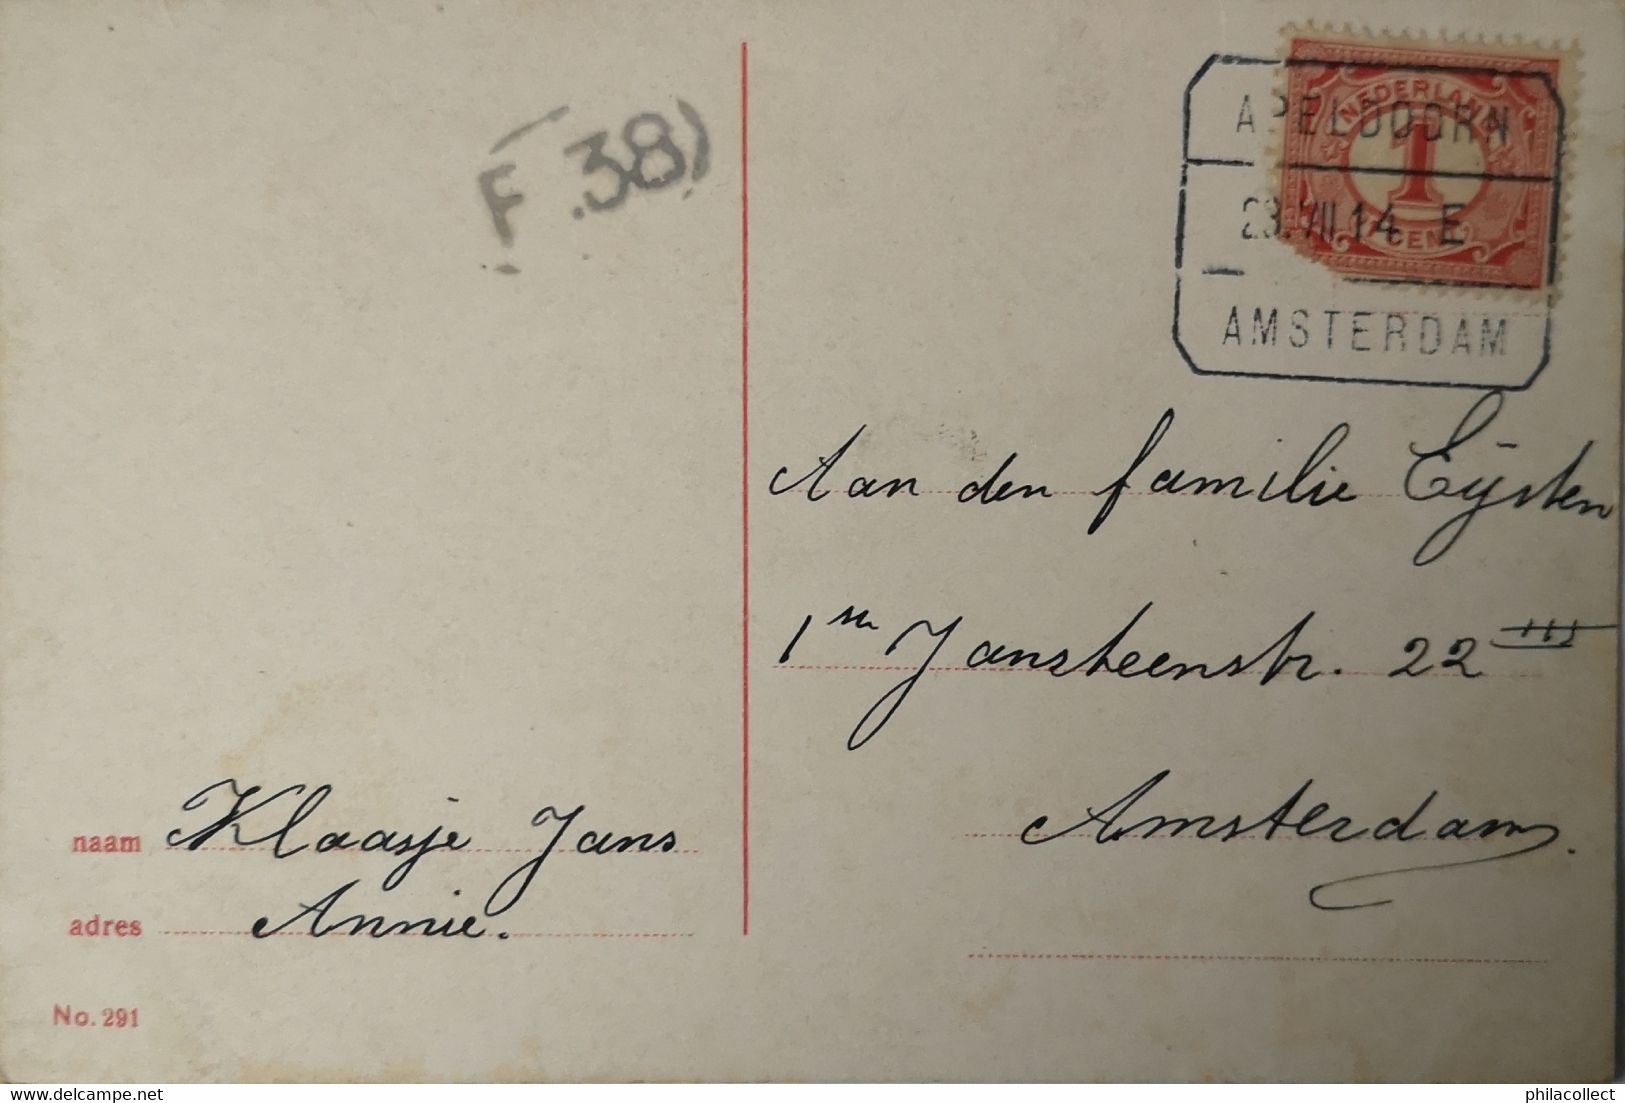 F .38)
NEDERLAND
1
CENT
APELDOORN
23.VII 14 E
AMSTERDAM
Aan den familie Eijsten
1ste Jansteenstr. 22 III
Amsterdam.
naam Klaasje Jans
adres Annie.
No. 291
delcampe.net
philacollect